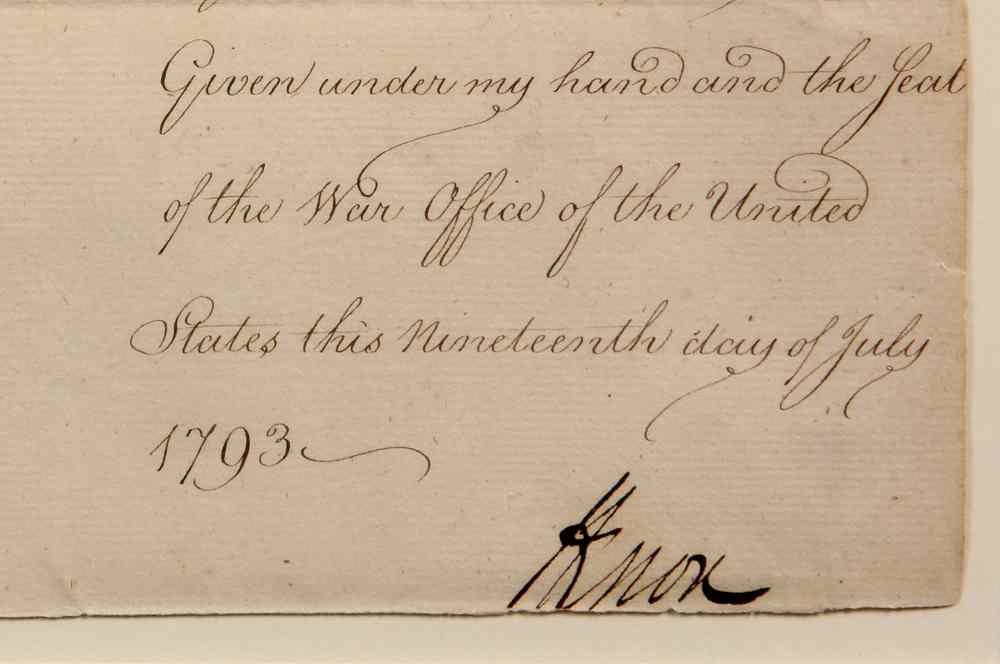 Given under my hand and the Seal
of the War Office of the United
States this Nineteenth day of July
1793
HKnox